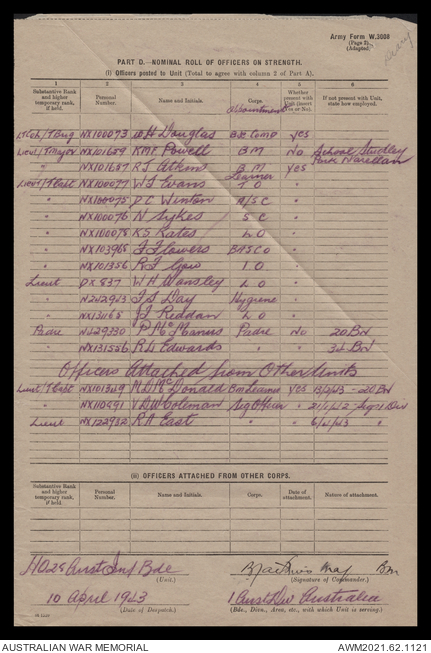 Army Form W.3008
(Page 2)
(Adapted)
PART D.—NOMINAL ROLL OF OFFICERS ON STRENGTH.
(i) Officers posted to Unit (Total to agree with column 2 of Part A).
1 2 3 4 5 6
Substantive Rank and higher temporary rank, if held. Personal Number. Name and Initials. Corps. Whether present with Unit (insert Yes or No). If not present with Unit, state how employed.
Appointment
Lt Col/T/Brig NX100073 W A Douglas Bde Comd yes
Lieut/T/Major NX101659 R M C Powell B M No School Studley
" NX101657 R J Atkins B M Learner yes Park Narellan
Lieut/T/Capt NX100077 W J Evans T O "
" NX100075 D C Winton A/S C "
" NX100076 N Sykes S C "
" NX100078 K S Kates L O "
" NX103965 J Flowers BASCO "
" NX101356 R J Gow I O "
Lieut DX 837 W H Wansley L O "
" NX242943 J S Day Hygiene "
" NX13165 J L Reddan L O "
Padre N429330 P McManus Padre No 20 Bn
" NX131556 R L Edwards " " 34 Bn
Officers Attached from Other Units
Lieut/T/Capt NX101349 M D McDonald Bm Learner yes 13/2/43 - 20 Bn
" NX110491 V D W Coleman Sig Officer "
Lieut NX122932 R A East " 6/4/43 "
(ii) OFFICERS ATTACHED FROM OTHER CORPS.
Substantive Rank and higher temporary rank, if held. Personal Number. Name and Initials. Corps. Date of attachment. Nature of attachment.
HQ 28 Aust Inf Bde
(Unit.)
Maj Bm
(Signature of Commander.)
10 April 1943
(Date of Despatch.)
1 Aust Div Australia
(Bde., Divn., Area, etc., with which Unit is serving.)
AUSTRALIAN WAR MEMORIAL
AWM2021.62.1121